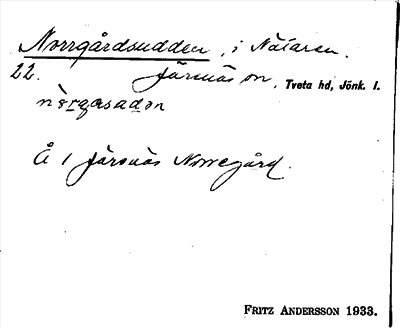 Norrgårdsudden, i Nätaren.
22. Järsnäs sn, Tveta hd, Jönk. l.
Å i Järsnäs Norregård.
FRITZ ANDERSSON 1933.